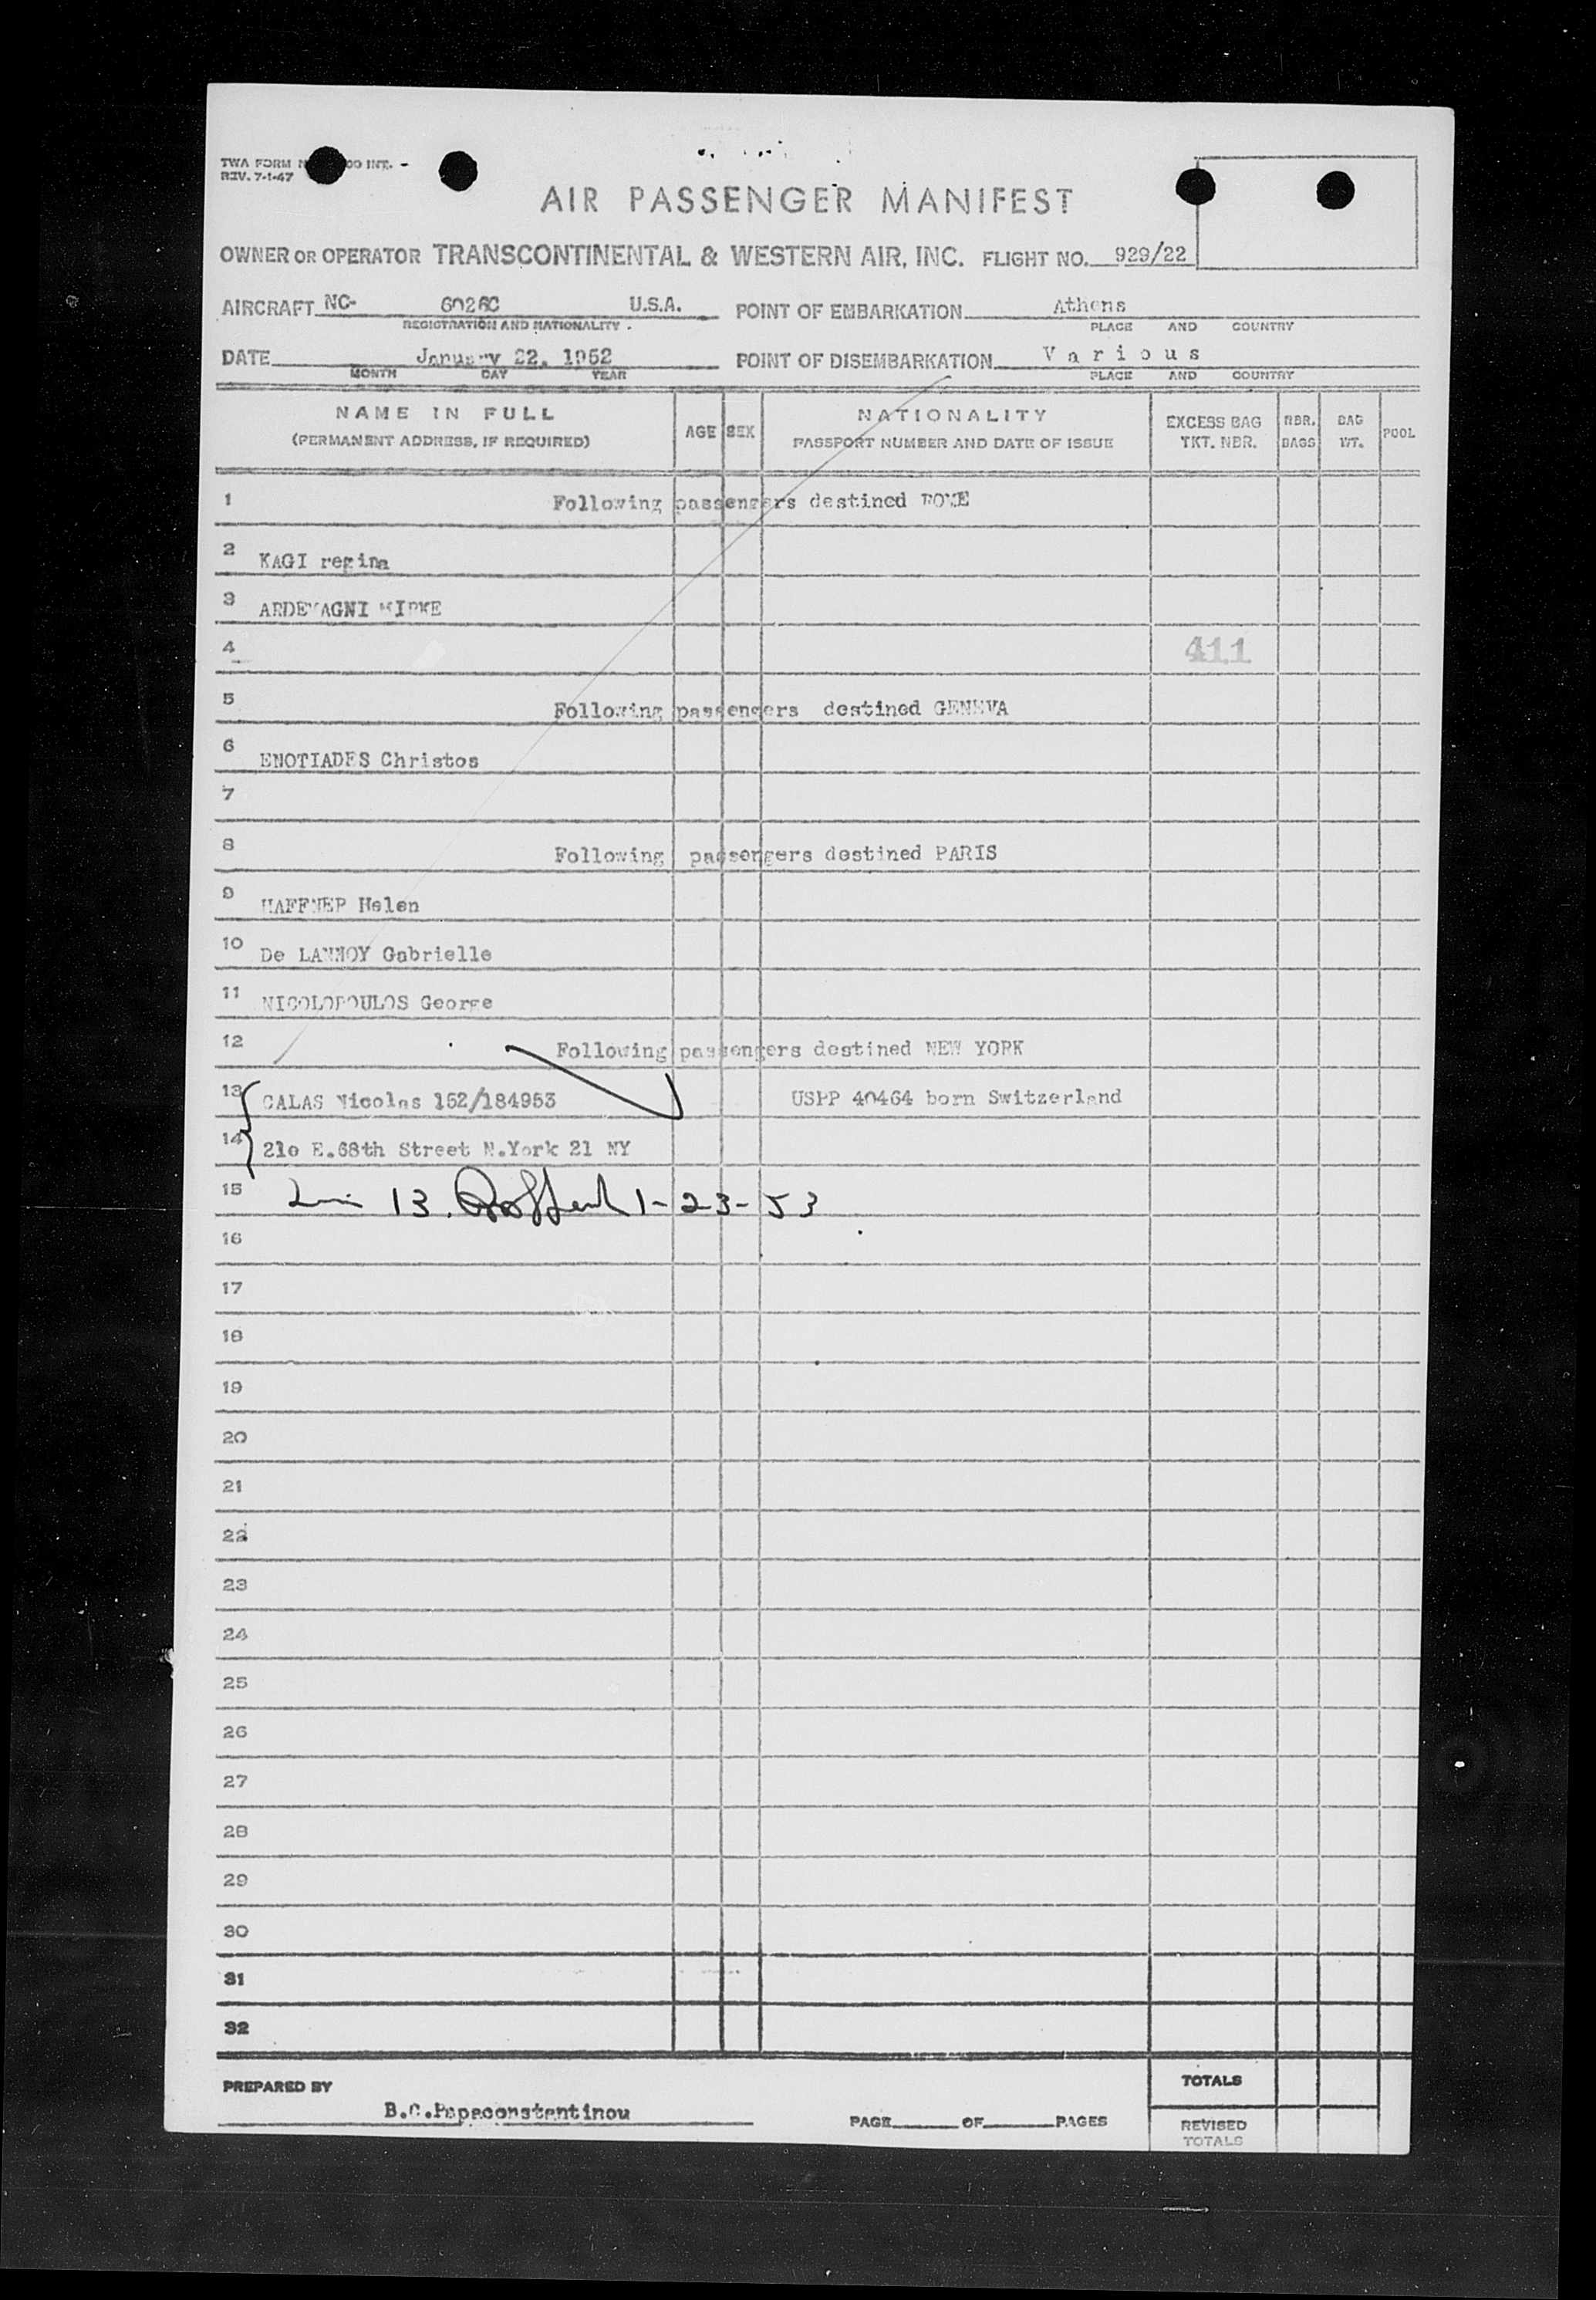 TWA FORM INT. -
REV. 7-1-47
AIR PASSENGER MANIFEST
OWNER OR OPERATOR TRANSCONTINENTAL & WESTERN AIR, INC. FLIGHT NO. 929/22
AIRCRAFT NC- 6026C U.S.A. POINT OF EMBARKATION Athens
REGISTRATION AND NATIONALITY. PLACE AND COUNTRY
DATE January 22, 1952 POINT OF DISEMBARKATION Various
MONTH DAY YEAR PLACE AND COUNTRY
NAME IN FULL
(PERMANENT ADDRESS, IF REQUIRED)
AGE SEX
NATIONALITY
PASSPORT NUMBER AND DATE OF ISSUE
EXCESS BAG
TKT. NBR.
NBR.
BAGS
BAG
WT.
POOL
1 Following passengers destined ROME
2 KAGI regina
3 ARDEMAGNI MIRKE
4 411
5 Following passengers destined GENEVA
6 ENOTIADES Christos
7
8 Following passengers destined PARIS
9 HAFFNER Helen
10 De LANNOY Gabrielle
11 NICOLOPOULOS George
12 Following passengers destined NEW YORK
13 CALAS Nicolas 152/184953 USPP 40464 born Switzerland
14 210 E.68th Street N.York 21 NY
15 13. 1-23-53
16
17
18
19
20
21
22
23
24
25
26
27
28
29
30
31
32
PREPARED BY
B.C.Papaconstantinou
PAGE OF PAGES
TOTALS
REVISED
TOTALS